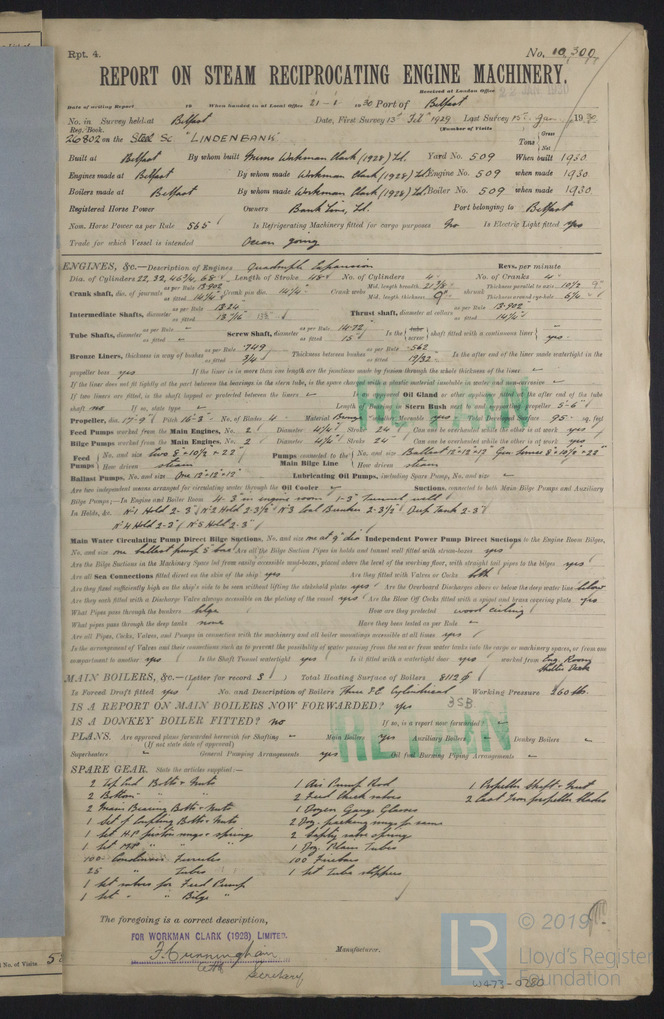 Rpt. 4.
No. 10,300
REPORT ON STEAM RECIPROCATING ENGINE MACHINERY.
Received at London Office 22 JAN 1930
Date of writing Report 19 When handed in at Local Office 21-1-1930 Port of Belfast
No. in Survey held at Belfast Date, First Survey 13th Feb 1929 Last Survey 15th Jan 1930
Reg. Book. (Number of Visits
26802 on the Steel Sc "LINDENBANK" Tons Gross Net
Built at Belfast By whom built Messrs Workman Clark (1928) Ld. Yard No. 509 When built 1930
Engines made at Belfast By whom made Workman Clark (1928) Ld. Engine No. 509 when made 1930
Boilers made at Belfast By whom made Workman Clark (1928) Ld. Boiler No. 509 when made 1930
Registered Horse Power Owners Bank Line, Ld. Port belonging to Belfast
Nom. Horse Power as per Rule 565 Is Refrigerating Machinery fitted for cargo purposes No Is Electric Light fitted Yes
Trade for which Vessel is intended Ocean going
ENGINES, &c.—Description of Engines Quadruple Expansion Revs. per minute
Dia. of Cylinders 22, 32, 46¾, 68 Length of Stroke 48 No. of Cylinders 4 No. of Cranks 4
Crank shaft, dia. of journals as per Rule 13.902 as fitted 14¼ Crank pin dia. 14¼ Crank webs Mid. length breadth 21⅞ Mid. length thickness 9" shrunk Thickness parallel to axis Thickness around eye-hole 6¼
Intermediate Shafts, diameter as per Rule 13.24 as fitted Thrust shaft, diameter at collars as per Rule 13.902 as fitted 14¼
Tube Shafts, diameter as per Rule as fitted Screw Shaft, diameter as per Rule 14.72 as fitted 15 Is the tube screw shaft fitted with a continuous liner yes
Bronze Liners, thickness in way of bushes as per Rule .749 as fitted ¾ Thickness between bushes as per Rule .562 as fitted 19/32 Is the after end of the liner made watertight in the
propeller boss yes If the liner is in more than one length are the junctions made by fusion through the whole thickness of the liner
If the liner does not fit tightly at the part between the bearings in the stern tube, is the space charged with a plastic material insoluble in water and non-corrosive
If two liners are fitted, is the shaft lapped or protected between the liners Oil Gland after end of the tube
shaft no If so, state type Length of Bearing in Stern Bush next to and supporting propeller 5-6"
Propeller, dia. 17-9" Pitch 16-3 No. of Blades 4 Material Bronze Total Developed Surface 95 sq. feet
Feed Pumps worked from the Main Engines, No. 2 Diameter 4¼ Stroke 24 Can one be overhauled while the other is at work yes
Bilge Pumps worked from the Main Engines, No. 2 Diameter 4¼ Stroke 24 Can one be overhauled while the other is at work yes
Feed Pumps No. and size two 8"×10½"×22" How driven steam Pumps connected to the Main Bilge Line No. and size Ballast 12"×12"×12" Gen. Service 8"×10½"×22" How driven steam
Ballast Pumps, No. and size One 12"×12"×12" Lubricating Oil Pumps, including Spare Pump, No. and size
Are two independent means arranged for circulating water through the Oil Cooler Suctions, connected to both Main Bilge Pumps and Auxiliary
Bilge Pumps;—In Engine and Boiler Room 4-3" in engine room 1-3" Tunnel well
In Holds, &c. No 1 Hold 2-3" No 2 Hold 2-3½" No 3 Coal Bunker 2-3½" Deep Tank 2-3"
No 4 Hold 2-3" No 5 Hold 2-3"
Main Water Circulating Pump Direct Bilge Suctions, No. and size one at 9" dia Independent Power Pump Direct Suctions to the Engine Room Bilges,
No. and size one ballast pump 5" bore Are all the Bilge Suction Pipes in holds and tunnel well fitted with strum-boxes yes
Are the Bilge Suctions in the Machinery Space led from easily accessible mud-boxes, placed above the level of the working floor, with straight tail pipes to the bilges yes
Are all Sea Connections fitted direct on the skin of the ship yes Are they fitted with Valves or Cocks both
Are they fixed sufficiently high on the ship's side to be seen without lifting the stokehold plates yes Are the Overboard Discharges above or below the deep water line below
Are they each fitted with a Discharge Valve always accessible on the plating of the vessel yes Are the Blow Off Cocks fitted with a spigot and brass covering plate yes
What Pipes pass through the bunkers bilge How are they protected wood ceiling
What pipes pass through the deep tanks none Have they been tested as per Rule
Are all Pipes, Cocks, Valves, and Pumps in connection with the machinery and all boiler mountings accessible at all times yes
Is the arrangement of Valves and their connections such as to prevent the possibility of water passing from the sea or from water tanks into the cargo or machinery spaces, or from one
compartment to another yes Is the Shaft Tunnel watertight yes Is it fitted with a watertight door yes worked from Eng. Room Shelter Deck
MAIN BOILERS, &c.—(Letter for record S) Total Heating Surface of Boilers 8112
Is Forced Draft fitted yes No. and Description of Boilers Three S.E. Cylindrical Working Pressure 260 lbs
3SB
IS A REPORT ON MAIN BOILERS NOW FORWARDED? Yes
IS A DONKEY BOILER FITTED? no If so, is a report now forwarded?
PLANS. Are approved plans forwarded herewith for Shafting Main Boilers yes Auxiliary Boilers Donkey Boilers
(If not state date of approval)
Superheaters General Pumping Arrangements yes Oil fuel Burning Piping Arrangements
RETAIN
RETAIN
SPARE GEAR. State the articles supplied:—
2 Top End Bolts & Nuts 1 Air Pump Rod 1 Propeller Shaft & Nut
2 Bottom " " " 2 Feed Check valves 2 Cast Iron propeller blades
2 Main Bearing Bolts & Nuts 1 Dozen Gauge Glasses
1 Set of Coupling Bolts & Nuts 2 Doz. packing rings for same
1 Set H.P. piston rings & spring 2 Safety valve springs
1 Set M.P. " " " 1 Doz. Plain Tubes
100 Condenser Ferrules 100 Firebars
25 " Tubes 1 Set Tube stoppers
1 Set valves for Feed Pump
1 Set " " Bilge "
The foregoing is a correct description,
FOR WORKMAN CLARK (1928) LIMITED.
F. Cunningham Manufacturer.
Secretary
No. of Visits 5
© 2019
LR Lloyd's Register Foundation
W473-0780